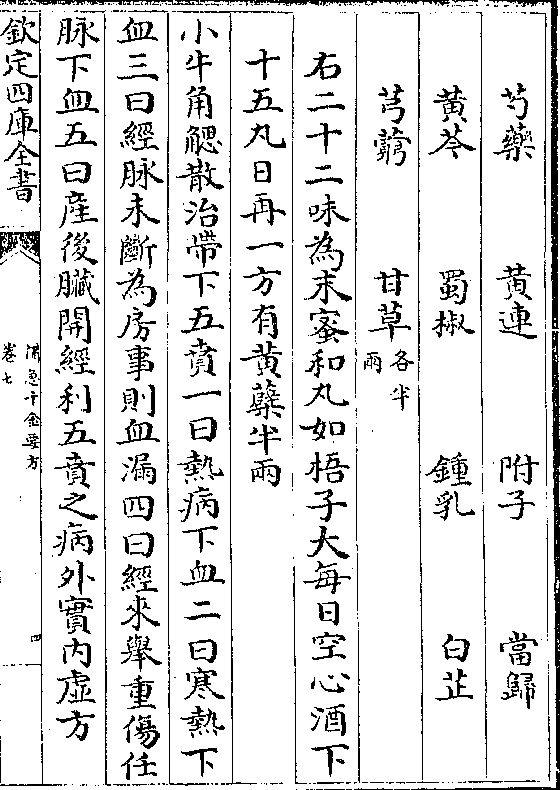 芍藥 黄連 附子 當歸
黄芩 蜀椒 鍾乳 白芷
芎藭 甘草各半兩
右二十二味為末蜜和丸如梧子大每日空心酒下
十五丸日再一方有黄蘗半兩
小牛角䚡散治帶下五賁一曰熱病下血二曰寒熱下
血三曰經脉未斷為房事則血漏四曰經來舉重傷任
脉下血五曰産後臟開經利五賁之病外實内虚方
欽定四庫全書
備急千金要方
卷七
四